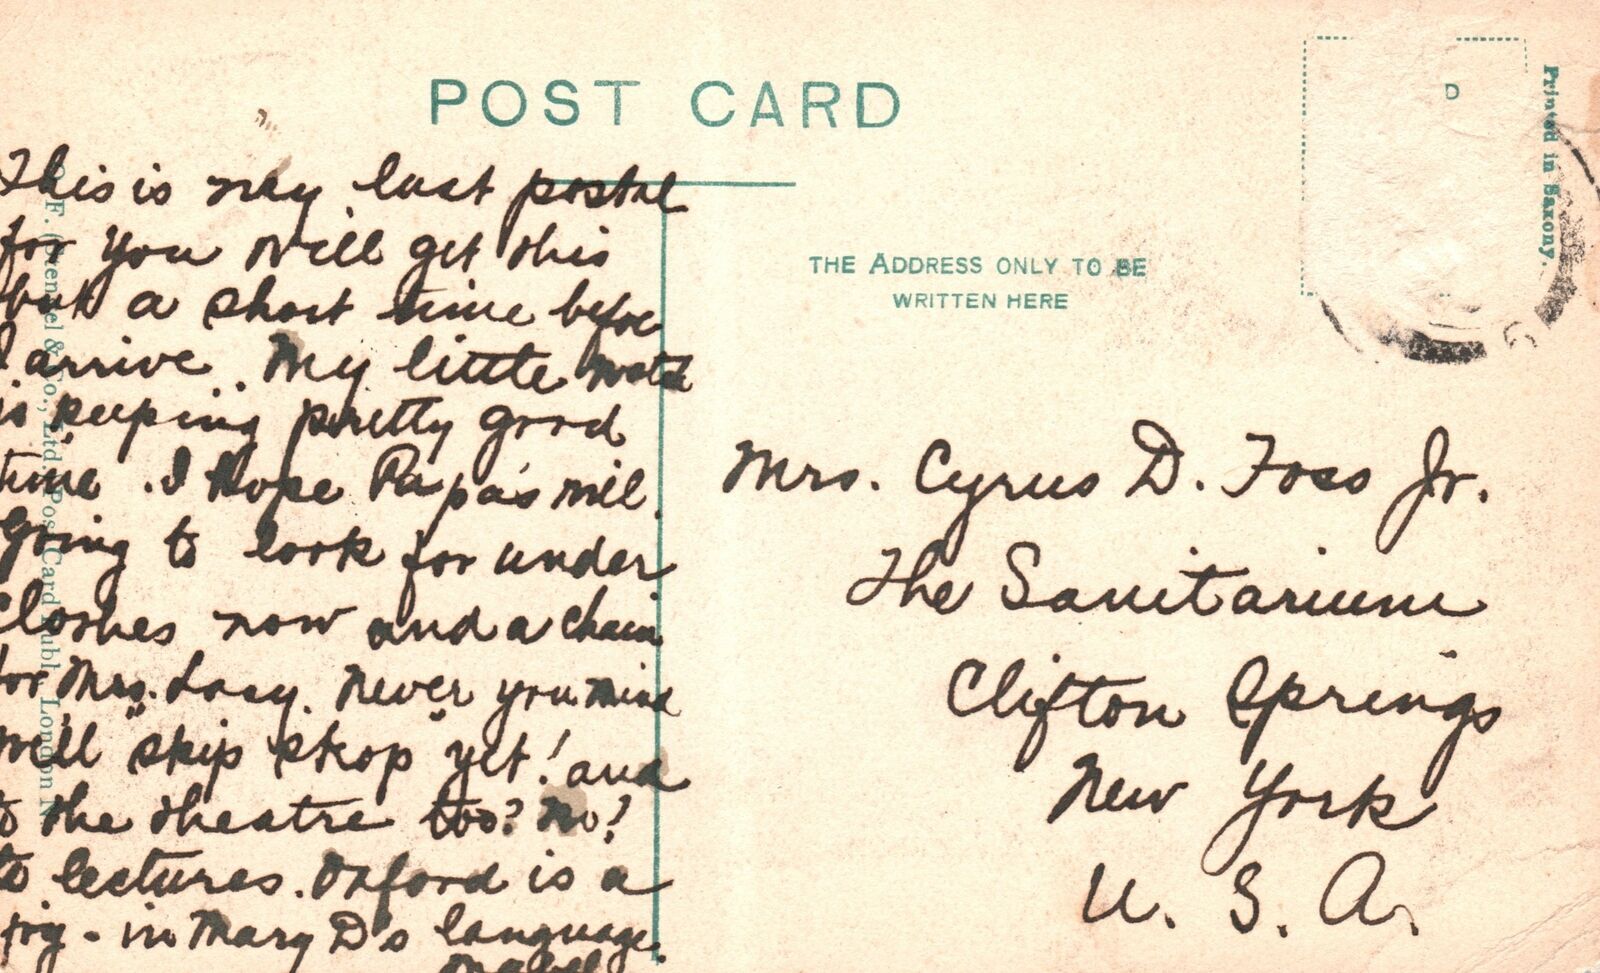 POST CARD
This is my last postal
for you will get this
but a short time before
I arrive. My little watch
is keeping pretty good
time. I hope Papa's
going to look for under
clothes now and a chain
for Mrs. Lacy. Never you mind
we'll "skip" "skop" yet! and
to the theatre too? No?
to lectures. Oxford is a
- in Mary D's language.
Mabel
F. & Co., Ltd. Post Card Publ London N.
THE ADDRESS ONLY TO BE
WRITTEN HERE
D
Printed in Saxony.
Mrs. Cyrus D. Foss Jr.
The Sanitarium
Clifton Springs
New York
U. S. A.